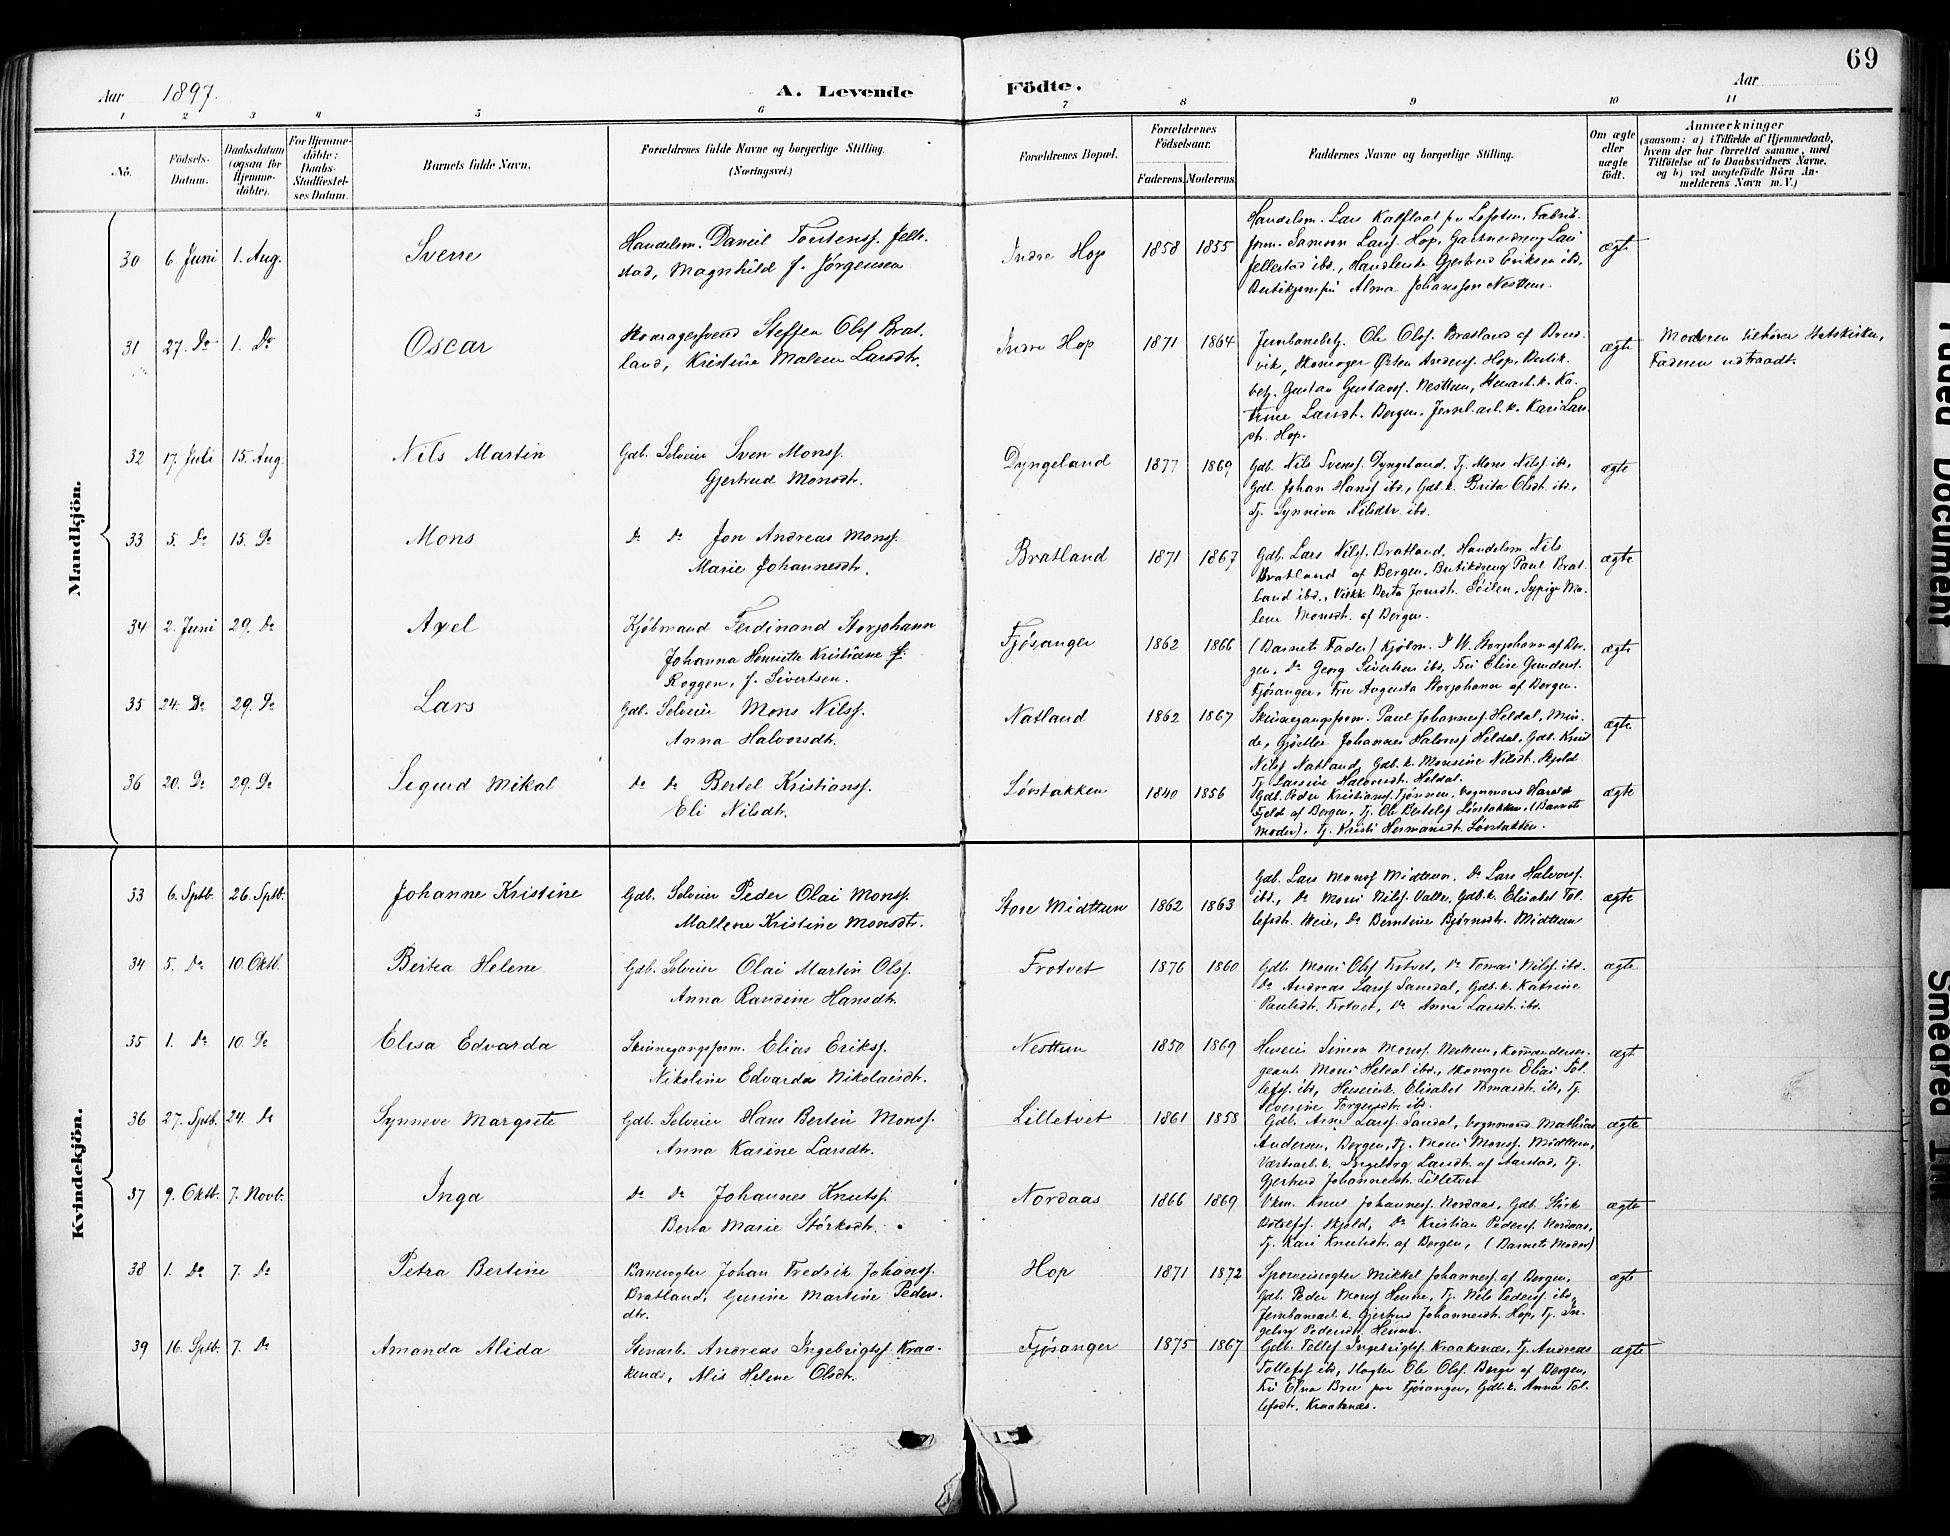 69
Aar 1897.
A. Levende Födte.
Aar
1 2 3 4 5 6 7 8 9 10 11
No. Födsels-Datum. Daabsdatum (ogsaa for Hjemmedöbte). For Hjemmedöbte: Daabs-Stadfæstelses Datum. Barnets fulde Navn. Forældrenes fulde Navne og borgerlige Stilling. (Næringsvei.) Forældrenes Bopæl. Forældrenes Födselsaar. Faderens. Moderens. Faddernes Navne og borgerlige Stilling. Om ægte eller uægte födt. Anmærkninger (saasom: a) i Tilfælde af Hjemmedaab, hvem der har forrettet samme, med Tilföielse af to Daabsvidners Navne, og b) ved uægtefödte Börn Anmelderens Navn m. V.)
Mandkjön.
30 6 Juni 1. Aug. Sverre Handelsm. Daniel Torstens. Jelle-
stad, Magnhild f. Jørgensen Indre Hop 1858 1855 ægte
Handelsm. Lars Kalfloat
Samson Lars. Hop,
Jellestad ibd., Gjertrud Eriksen ibd.,
Alma Johansson Nesttun.
31 27. Do 1. Do Oscar Skomagersvend Steffen Ols. Brat-
land, Kristine Malene Larsdtr. Indre Hop 1871 1864 ægte Moderen tilhører Statskirken,
Faderen udtraadt.
Ole Ols. Bratland af
vik, Skomager Anders. Hop,
Gustav Gustavs. Nesttun, k. Ka-
trine Larsdt. Bergen, k. Kari Lars-
dt. Hop.
32 17. Juli 15. Aug. Nils Martin Gdb. Selveier Sven Mons.
Gjertrud Monsdtr. Dyngeland 1877 1869 ægte
Gdb. Nils Svens. Dyngeland, Tj. Mons Nils. ibd.,
Gdb. Johan Hans. ibd., Gdb. k. Brita Olsdt. ibd.,
Tj. Synniva Nilsdtr. ibd.
33 5. Do 15. Do Mons Do Do Jon Andreas Mons.
Marie Johannesdtr. Bratland 1871 1867 ægte
Gdb. Lars Nils. Bratland, Handelsm. Nils
Bratland af Bergen, Butikdreng Paul Brat-
land ibd., Berta Jonsdt. Seilen, Sypige Ma-
lene Monsdt. af Bergen.
34 2. Juni 29. Do Axel Kjøbmand Ferdinand Storjohann
Johanna Henriette Kristiane
Roggen, f. Sivertsen. Fjøsanger 1862 1866 ægte
(Barnets Fader) Kjøbm. Storjohann af Ber-
gen, Do Georg Sivertsen ibd, Fru Elise Gunders.
Fjøsanger, Fru Augusta Storjohann af Bergen.
35 24. Do 29. Do Lars Gdb. Selveier Mons Nils.
Anna Halvorsdtr. Natland 1862 1867 ægte
Skinnegangsform. Paul Johannes. Heldal, Min-
de, Johannes Halvors. Heldal, Gdb. Knut
Nils. Natland, Gdb. k. Monsine Nilsdt. Skjold
Tj. Larsine Halvorsdt. Heldal.
36 20. Do 29. Do Sigurd Mikal Do Do Bertel Kristians.
Eli Nilsdtr. Løvstakken 1840 1856 ægte
Gdb. Peder Kristians. Vognmand Harald
Fjeld af Bergen, Tj. Ole Bertels. Løvstakken, (Barnets
Moder), Tj. Kristi Hermansdt. Løvstakken.
Kvindekjön.
33 6. Sptb. 26. Sptb. Johanne Kristine Gdb. Selveier Peder Olai Mons.
Mallene Kristine Monsdtr. Store Midttun 1862 1863 ægte
Gdb. Lars Mons. Midttun, Do Lars Halvors.
ibd., Do Mons Nils. Valle, Gdb. k. Elisabet Tol-
lefsdt. Do Berntine Bjørnsdt. Midttun
34 5. Do 10. Oktb. Berta Helene Gdb. Selveier Olai Martin Ols.
Anna Randine Hansdtr. Frotvet 1876 1860 ægte
Gdb. Mons Ols. Frotvet, Do Tomas Nils. ibd.
Do Andreas Lars. Sandal, Gdb. k. Katrine
Paulsdt. Frotvet, Do Anna Larsdt. ibd.
35 1. Do 10. Do Elisa Edvarda Skinnegangsform. Elias Eriks.
Nikoline Edvarda Nikolaisdtr. Nesttun 1850 1869 ægte
Huseier Simon Mons. Nesttun, Kommanderser-
geant Mons Heldal ibd., Skomager Elias Tol-
lefs. ibd, Huseierk. Elisabet Tomasdt. ibd, Tj.
Severine Torgersdt. ibd.
36 27. Sptb. 24. Do Synneve Margrete Gdb. Selveier Hans Bertin Mons.
Anna Karine Larsdtr. Lilletvet 1861 1858 ægte
Gdb. Arne Lars. Sandal, Vognmand Mathias
Andersen, Bergen, Tj. Mons Mons. Midttun,
Ingeborg Larsdt. af Aarstad, Tj.
Gjertrud Johannesdt. Lilletvet
37 9. Oktb. 7. Novb. Inga Do Do Johannes Knuts.
Berta Marie Størksdtr. Nordaas 1866 1869 ægte
Knut Johannes. Nordaas, Gdb. Størk
Botolfs. Skjold, Do Kristian Peders. Nordaas,
Tj. Kari Knutsdt. af Bergen, (Barnets Moder)
38 1. Do 7. Do Petra Bertine Banevogter Johan Fredrik Johans.
Bratland, Gurine Martine Peders-
dtr. Hop 1871 1872 ægte
Sporveisvogter Mikkel Johannes. af Bergen,
Gdb. Peder Mons. Tj. Nils Peders. ibd,
Jernbanearb. k. Gjertrud Johannesdt. Hop, Tj. In-
geborg Pedersdt.
39 16. Sptb. 7. Do Amanda Alida Stenarb. Andreas Ingebrigts. Kraa-
kenæs, Alis Helene Olsdtr. Fjøsanger 1875 1867 ægte
Gdb. Tollef Ingebrigts. Kraakenæs, Tj. Andreas
Tollefs. ibd, Slagter Ole Ols. Berge af Bergen,
Elna Bree paa Fjøsanger, Gdb. k. Anna Tol-
lefsdt. Kraakenæs.
Faded Document
Smeared Ink